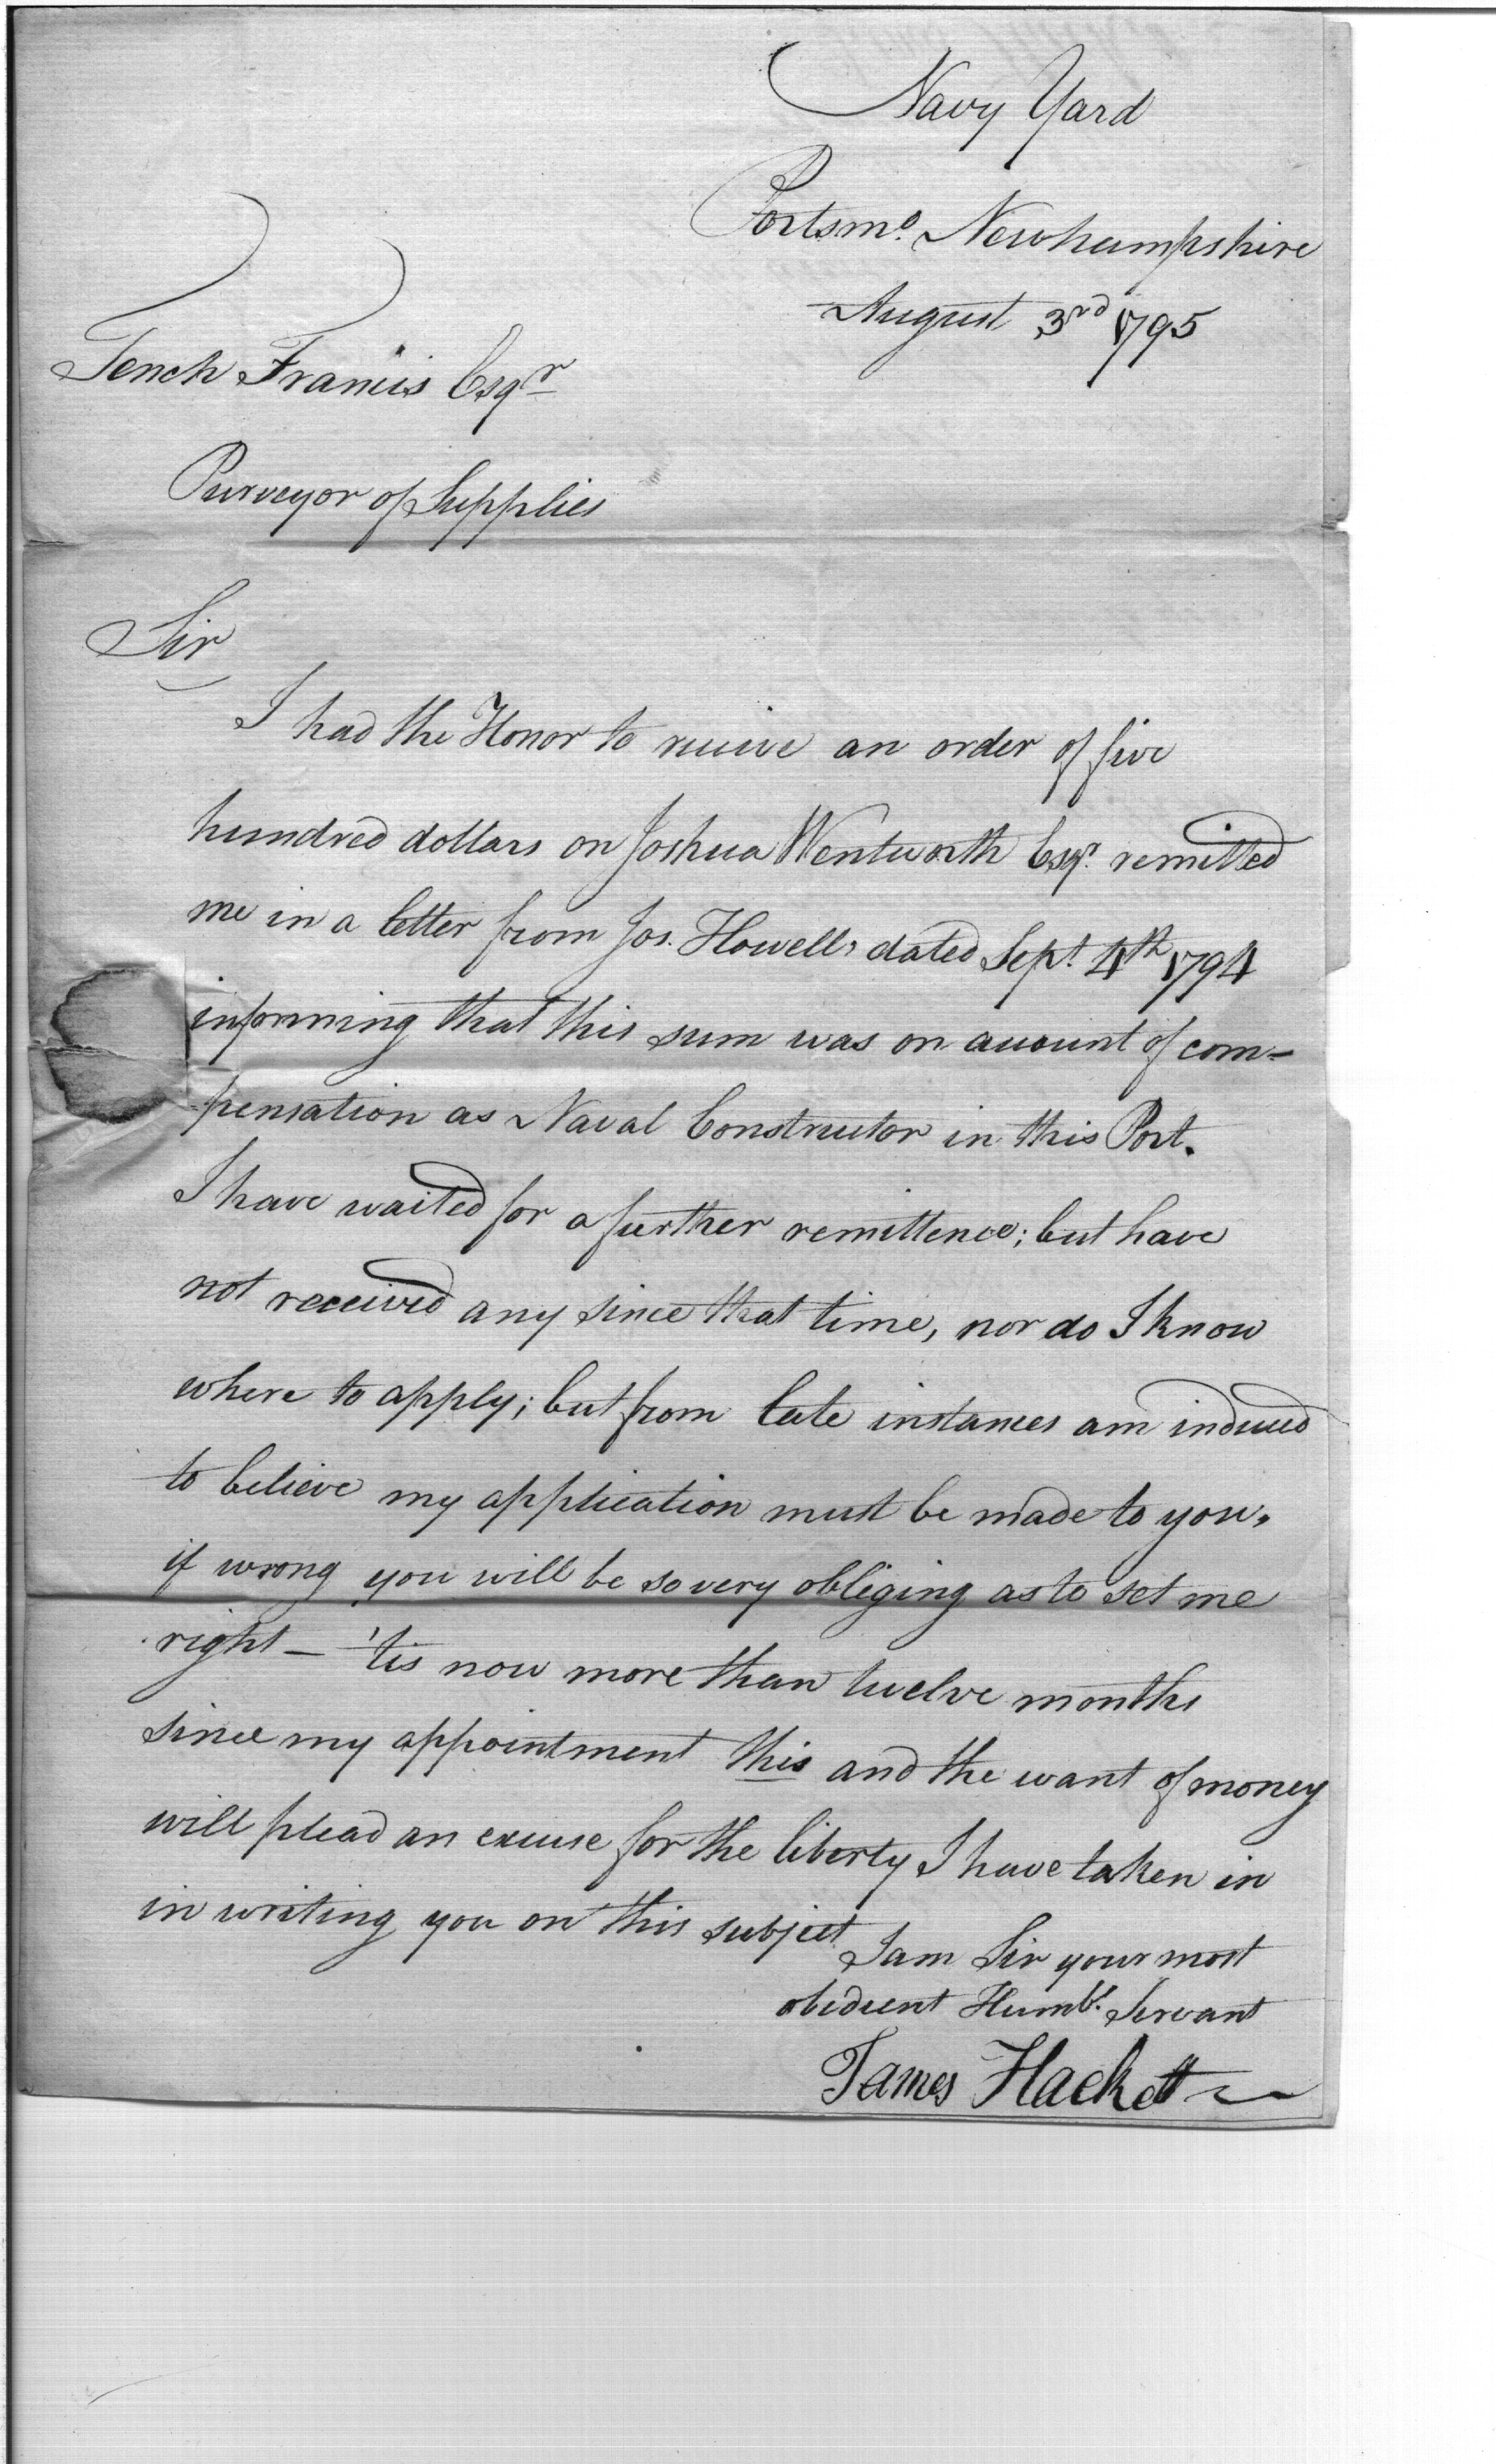 Navy Yard
Portsmo. Newhampshire
August 3rd 1795
Tench Francis Esqr
Purveyor of Supplies
Sir
I had the Honor to receive an order of five
hundred dollars on Joshua Wentworth Esqr. remitted
me in a letter from Jos. Howell, dated Sept. 4th 1794
informing that this sum was on account of com-
-pensation as Naval Constructor in this Port.
I have waited for a further remittence; but have
not received any since that time, nor do I know
where to apply; but from late instances am induced
to believe my application must be made to you,
if wrong you will be so very obliging as to set me
right - 'tis now more than twelve months
since my appointment this and the want of money
will plead an excuse for the liberty I have taken in
in writing you on this subject
I am Sir your most
obedient Humbl. Servant
James Hackett